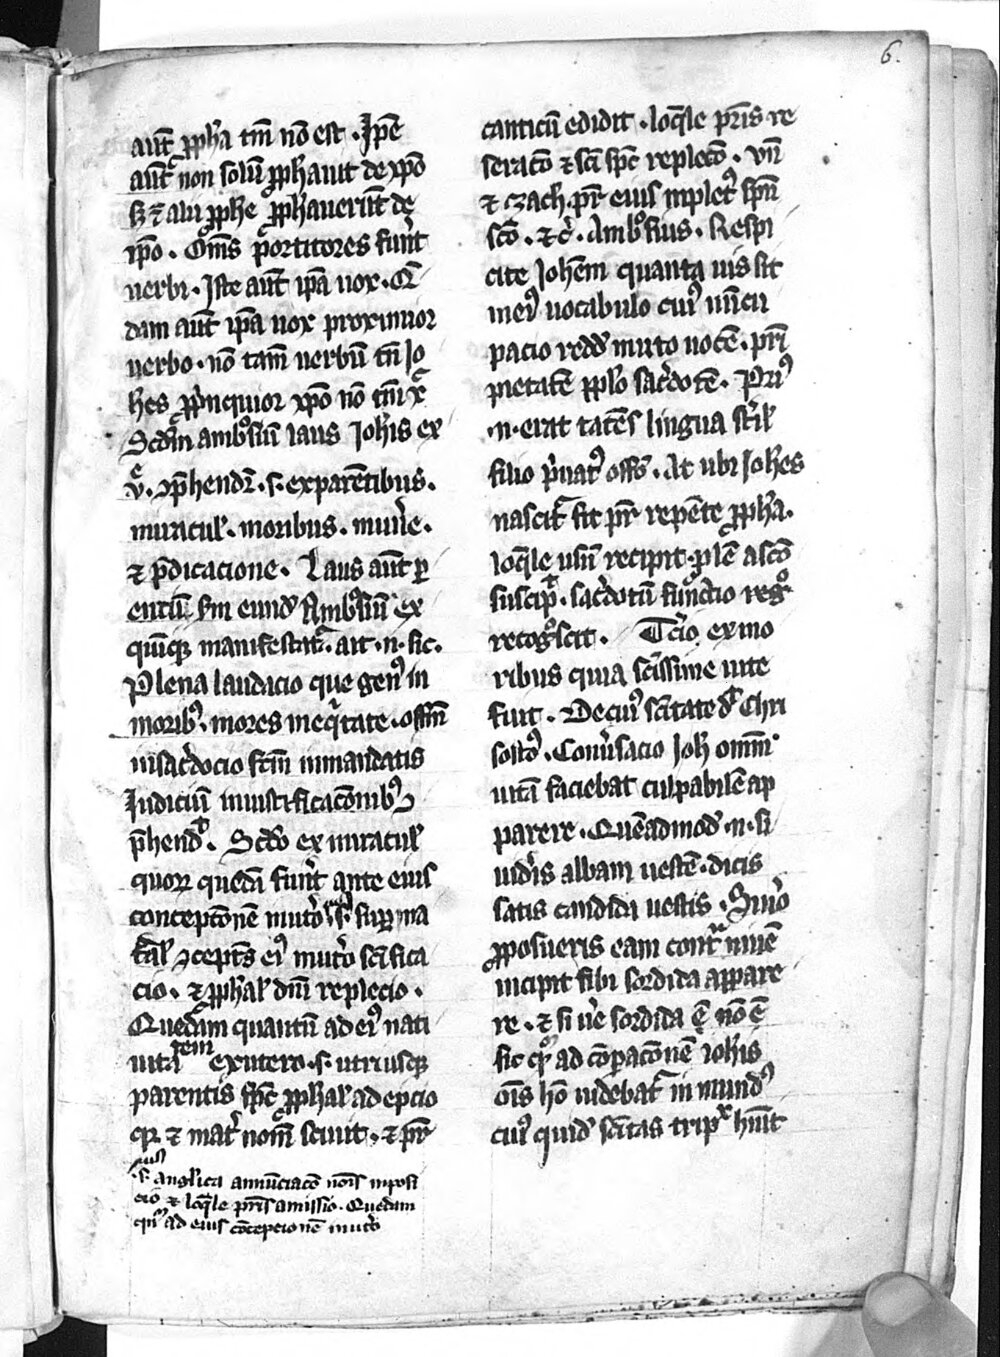 6.
aut̄ ꝓph̄a tm̄ nō est . Ip̄e
aut̄ non solū ꝓphauit de xp̄o
sȝ ⁊ alii ꝓphe ꝓphauerūt de
ip̄o . Om̄s portitores fuer̄t
uerbi . Iste aut̄ ip̄a uox .
dam aut̄ ip̄a uox proximior
uerbo . nō tam̄ uerbū tn̄ Io
hēs ꝓpinquior xp̄o nō tm̄ xp̄c
Scd̄m ambꝰsiū laus Ioh̄is ex
v . ꝯp̄hendit̄ . s . ex parētibus .
miracul̄ . moribus . mun̄e .
⁊ p̄dicacione . Laus aut̄ ꝑ
entū scd̄m eund̄ Ambꝰsiū ex
quīqꝫ manifestat̄ . ait . n . sic .
Plena laudacio que genꝰ in
moribꝰ . mores in eq̄tate . offm̄
in sac̄docio fcm̄ in mandatis
Iudiciū in iustificac̄onibꝰ
p̄hend̄ . Scd̄o ex miracul̄
quoꝝ quedā fuer̄t ante eius
concepc̄onē
ꝯcepc̄ . eiꝰ sc̄ifica
cio . ⁊ ꝓphal̄ dn̄i replecio .
Quedam quantū ad eiꝰ nati
uitatem ex utero . s . utriusqꝫ
parentis sp̄c ꝓphal̄ adepcio
qꝫ ⁊ mat̄ nom̄ sciuit . ⁊ pr̄
eiꝰ
s . anglica annūciac̄o nōis inposi
cio ⁊ loq̄le pr̄is amissio . Quedam
quo ad eius cōcepcionē
canticū edidit . loq̄le pr̄is re
serac̄o ⁊ sc̄i sp̄c replec̄o . vn̄
⁊ zach . pr̄ eius inpletꝰ spū
sc̄o . ⁊c̄ . Ambꝰsius . Respi
cite Ioh̄em quanta uis sit
in eiꝰ uocabulo cuiꝰ nūcu
pacio redd̄ muto uocē . pr̄i
pietatē pp̄lo sac̄dotē . Priꝰ
.n. erat tacēs lingua st̄il̄
filio p̄uatꝰ off̄o . At ubi Ioh̄es
nascit̄ fit pr̄ repente ꝓph̄a .
loq̄le usū recipit
suscip̄ . sac̄dotū
recogꝰscit . Tc̄io ex mo
ribus quia sc̄issime uite
fuit . De cuiꝰ sc̄itate d̄ Chri
sostꝰ . Conūsacio Ioh̄ omnī
uitā faciebat culpabilē ap
parere . Quēadmod̄ . n . si
uid̄is albam uestē . dicis
satis candida uestis . Si uo
ꝓposueris eam cont̄ niuē
incipit sibi sordida appare
re . ⁊ si ue sordida ē nō ē
sic qꝰ ad cōparac̄onē Ioh̄is
om̄is hō uidebat̄ inmundꝰ
cuiꝰ quid̄ sc̄itas trip̄x hūit